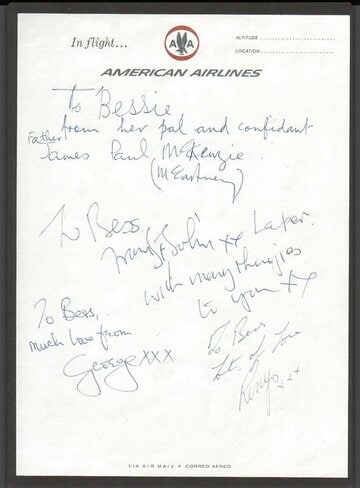 In flight...
A A
ALTITUDE
LOCATION
AMERICAN AIRLINES
To Bessie
from her pal and confidant
Father
James Paul McKenzie.
(McCartney)
To Bess
from 'John' xx Later.
with many
to you xx
To Bess,
much love from
George xxx
To Bess
Lots of Love
Ringo xxx
VIA AIR MAIL • CORREO AEREO